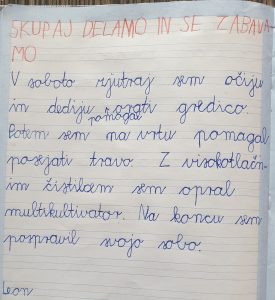 SKUPAJ DELAMO IN SE ZABAVA-
MO
V soboto zjutraj sem očiju
in dediju pomagal orati gredico.
Potem sem na vrtu pomagal
posejati travo. Z visokotlačn-
im čistilcem sem opral
multikultivator. Na koncu sem
pospravil svojo sobo.
Leon